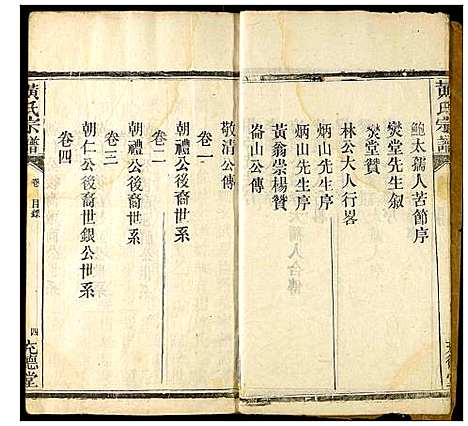 黃氏宗譜
鮑太孺人苦節序
熒堂先生叙
熒堂贊
林公大人行畧
炳山先生序
炳山先生序
黃翁崇楊贊
崙山公傳
敬清公傳
卷一
朝禮公後裔世系
卷二
朝禮公後裔世系
卷三
朝仁公後裔世銀公世系
卷四
黃氏宗譜
卷
目錄
四
充德堂